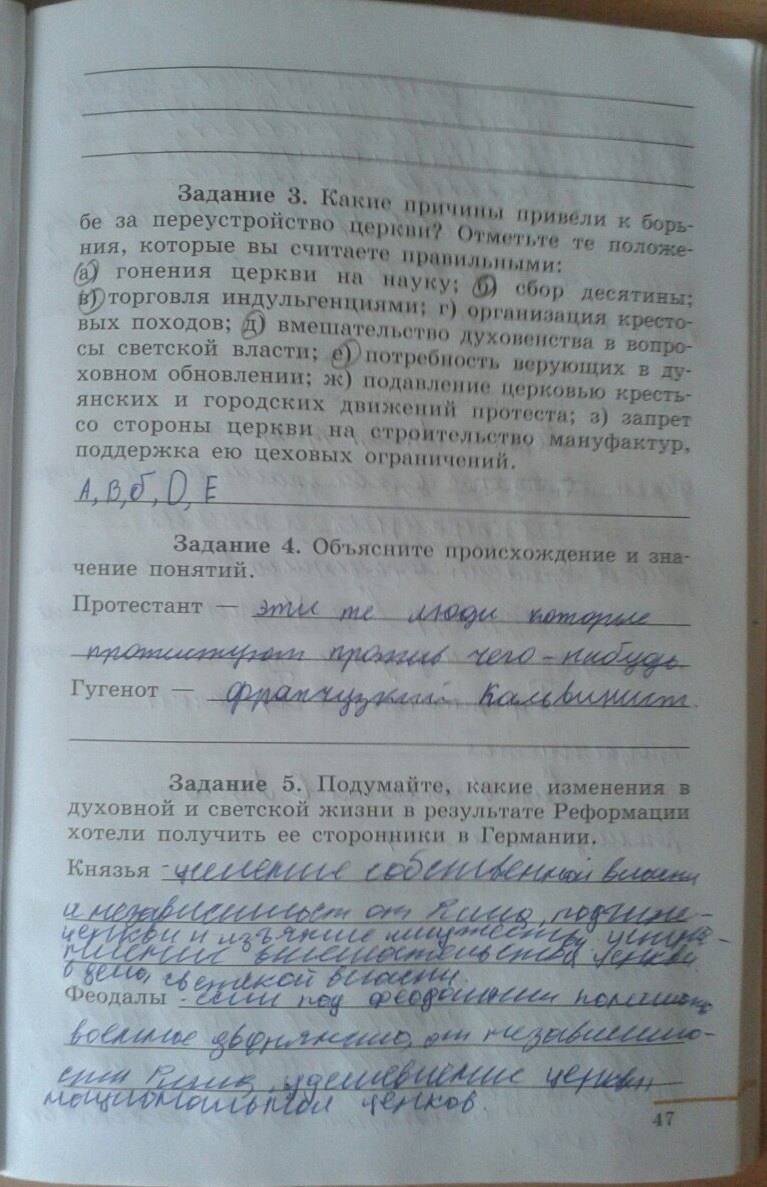 Задание 3. Какие причины привели к борь-
бе за переустройство церкви? Отметьте те положе-
ния, которые вы считаете правильными:
а) гонения церкви на науку; б) сбор десятины;
в) торговля индульгенциями; г) организация кресто-
вых походов; д) вмешательство духовенства в вопро-
сы светской власти; е) потребность верующих в ду-
ховном обновлении; ж) подавление церковью кресть-
янских и городских движений протеста; з) запрет
со стороны церкви на строительство мануфактур,
поддержка ею цеховых ограничений.
А, В, б, D, Е
Задание 4. Объясните происхождение и зна-
чение понятий.
Протестант — эти те люди которые
против чего-нибудь
Гугенот — французкий кальвинист
Задание 5. Подумайте, какие изменения в
духовной и светской жизни в результате Реформации
хотели получить ее сторонники в Германии.
Князья - собственной власти
и независимост от Рима,
церкви и церкви
в дела, светской власти.
Феодалы - если под феодалами
военное дворянство, от независимо-
сти Рима, удешевление церкви
церков.
47